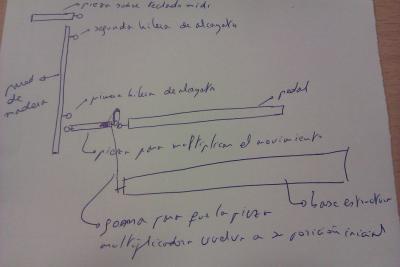 pieza sobre teclado midi
segunda hilera de alcayata
pared
de
madera
primera hilera de alcayata
pedal
pieza para multiplicar el movimiento
base estructura
goma para que la pieza
multiplicadora vuelva a su posición inicial